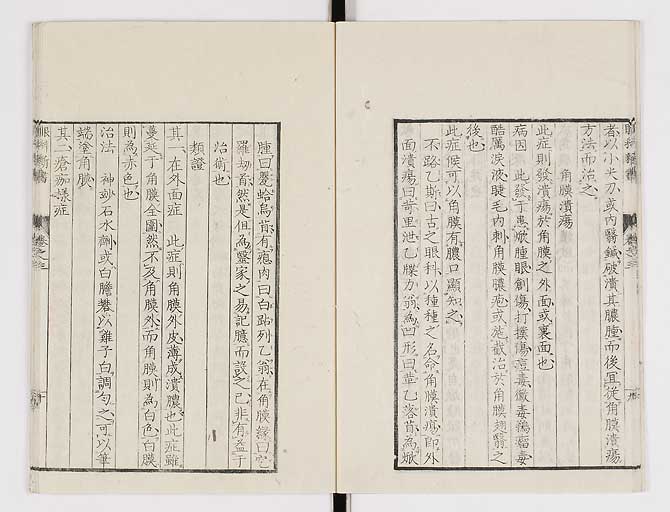 者以小尖刀或内翳鍼破潰其膿腫而後宜從角膜潰瘍
方法而治之
角膜潰瘍
此症則發潰瘍於角膜之外面或裏面也
病因 此發于患焮腫眼創傷打撲傷痘毒黴毒鶴瘤毒
酷厲淚液睫毛内刺角膜膿疱或施截治於角膜翅翳之
後也
此症候可以角膜有膿口顯知之
不路乙斯曰古之眼科以種種之名命角膜潰瘍即外
面潰瘍曰苛里泄乙牒力翁為凹形曰華乙洛首為焮
腫曰蹇蛤烏首有瘜肉曰白跕列乙翁在角膜緣曰它
羅刼首然是但為醫家之易記臆而設之已非有益于
治術也
類證
其一在外面症 此症則角膜外皮薄成潰膿也此症雖
蔓延于角膜全圖然不及角膜外而角膜則為白色白膜
則為赤色也
治法 神妙石水劑或白膽礬以雞子白調勻之可以筆
端塗角膜
其二瘡痂樣症